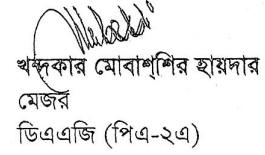 খন্দকার মোবাশ্শির হায়দার
মেজর
ডিএএজি (পিএ-২এ)